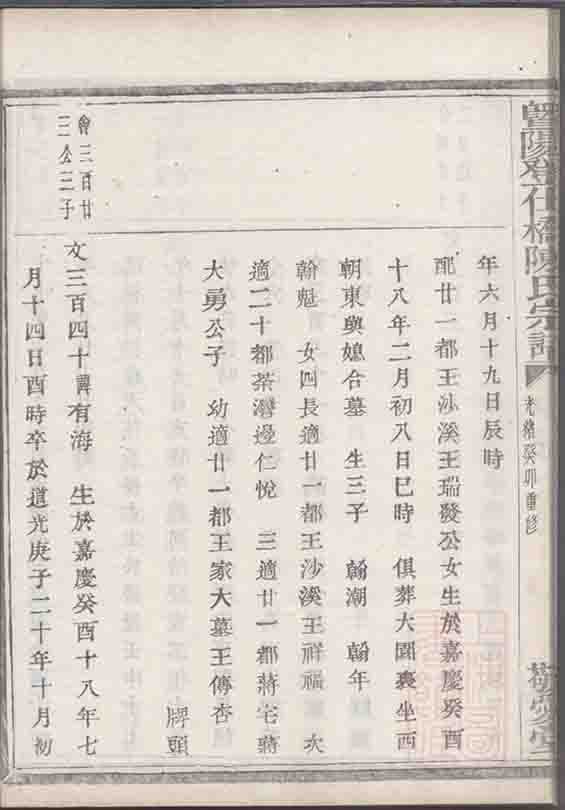 暨陽㕘仕橋陳氏宗譜 光緒癸卯重修 敬愛堂
年六月十九日辰時
配廿一都王沙溪王瑞發公女生於嘉慶癸酉
十八年二月初八日巳時 俱葬大園裏坐西
朝東與媳合墓 生三子 翰潮 翰年
翰魁 女四長適廿一都王沙溪王祥福 次
適二十都茶潛邊仁悅 三適廿一都蔣宅蔣
大勇公子 幼適廿一都王家大墓王傳杏
牌頭
會三百廿
三公三子
文三百四十 諱有海 生於嘉慶癸酉十八年七
月十四日酉時卒於道光庚子二十年十月初